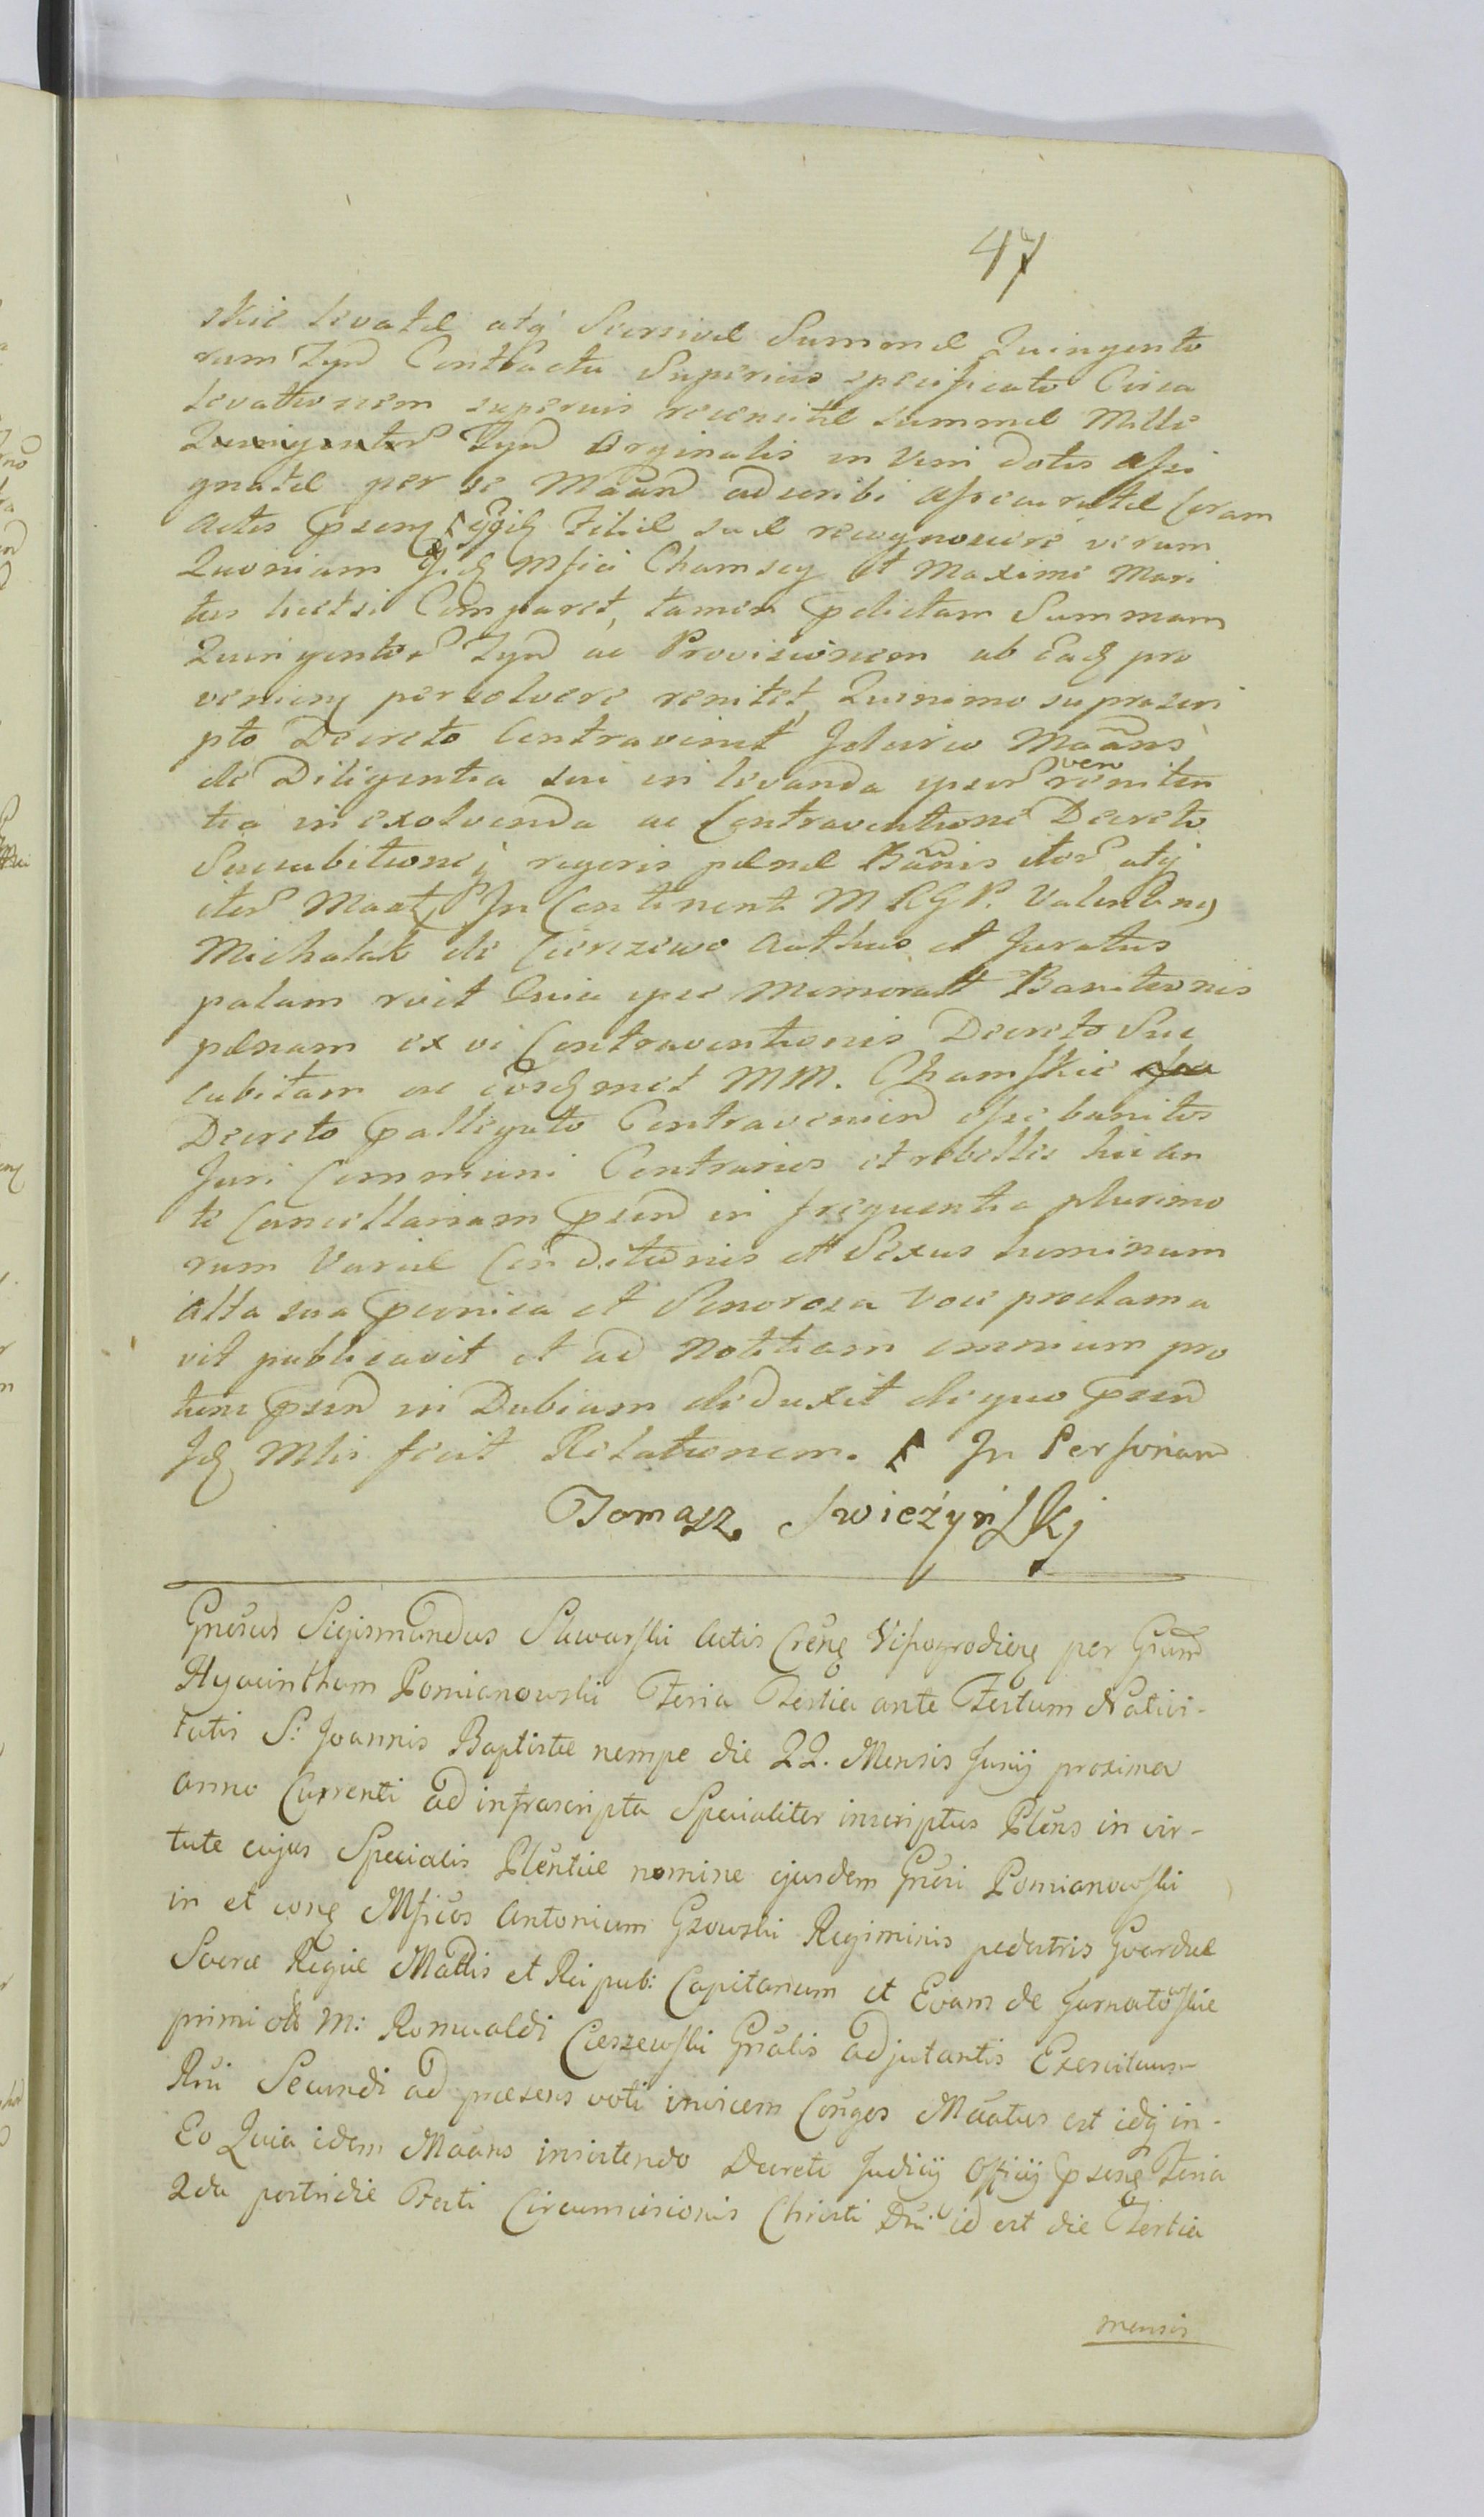 47
skie levatae atq̃ Summae Quingento
rum Tynf Contractu Superius specificato Circa
levationem superius recensitae summae Mille
Quingentor̃ Tynf Orginalis in Vim dotis assi
gnatae per se Maand adscribi assecuratae Coram
Actis psenq Filiae suae recognoscere verum
Quoniam Mfici Chamscy et Maxime Mari
tus licet si Comparet, tamen pdictam Summam
Quingentor̃ Tynf ac Provisionem ab Eadq pro
venienq persolvere renitet, Quinimo suprascri
pto Decreto Contravenit Idcirco Maãns
de Diligentia sui in levanda ipsor̃ reniten
ven
tia in exolvenda ac Contraventione Decreto
Succubitioneq rigoris paenae Bãnis itor̃ atq
itor̃ Maat, In Continenti M RGP. Valentinq
Michalak de Cierzewo Authus et Juratus
palam rcit Quia ipse Memoratt Banitionis
paenam ex vi Contraventionis Decreto Suc
cubitam ac eosdqmet MM. Chamskie
Decreto pallegato Contravenien esse banitos
Juri Communi Contrarios et rebelles hic an
te Cancellariam psend in frequentia plurimo
rum Variae Conditionis et Sexus hominum
alta sua peonica et Sonorosa Voce proclama
vit publicavit et ad Notitiam omnium pro
tunc psend in Dubiam deduxit de quo psend
Idq Mlis fecit Relationem. In Personam
Tomasz Swieżyńskj
Gnẽsus Sigismundus Sluwarski Actis Crẽnq Vissogrodienq per Gnũm
Hyacinthum Pomianowski Feria Tertia ante Festum Nativi-
tatis S: Joannis Baptistae nempe die 22. Mensis Junij proxima
anno Currenti ad infrascripta Specialiter inscriptus Plẽns in vir-
tute cujus Specialis Plẽntiae nomine ejusdem Gnẽri Pomianowski
in et conq Mficos Antonium Gzowski Regiminis pedestris Gvardiae
Sacrae Regiae Mattis et Reipub: Capitaneum et Evam de Jarnatowskie
primi M: Romualdi Cieszewski Gnalis adjutantis Exercituum
Rni Secundi ad praesens voti invicem Conges Maatus est idq in-
Eo Quia idem Maãns insistendo Decreti Judicij Officij psenq Feria
2da postridie Festi Circumcisionis Christi Dni id est die Tertia
mensis